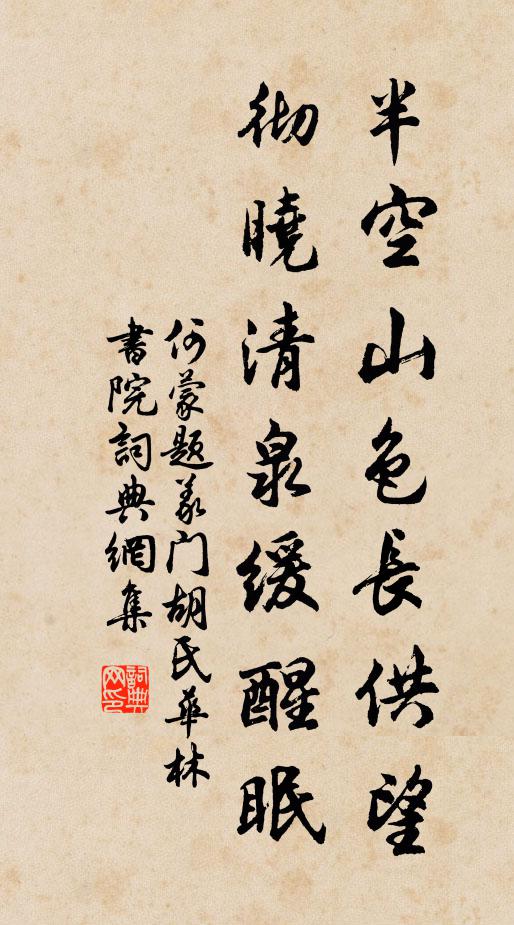 半空山色長供望
彻曉清泉缓醒眠
何蒙题义门胡氏華林
書院詞典網集
詞典网印